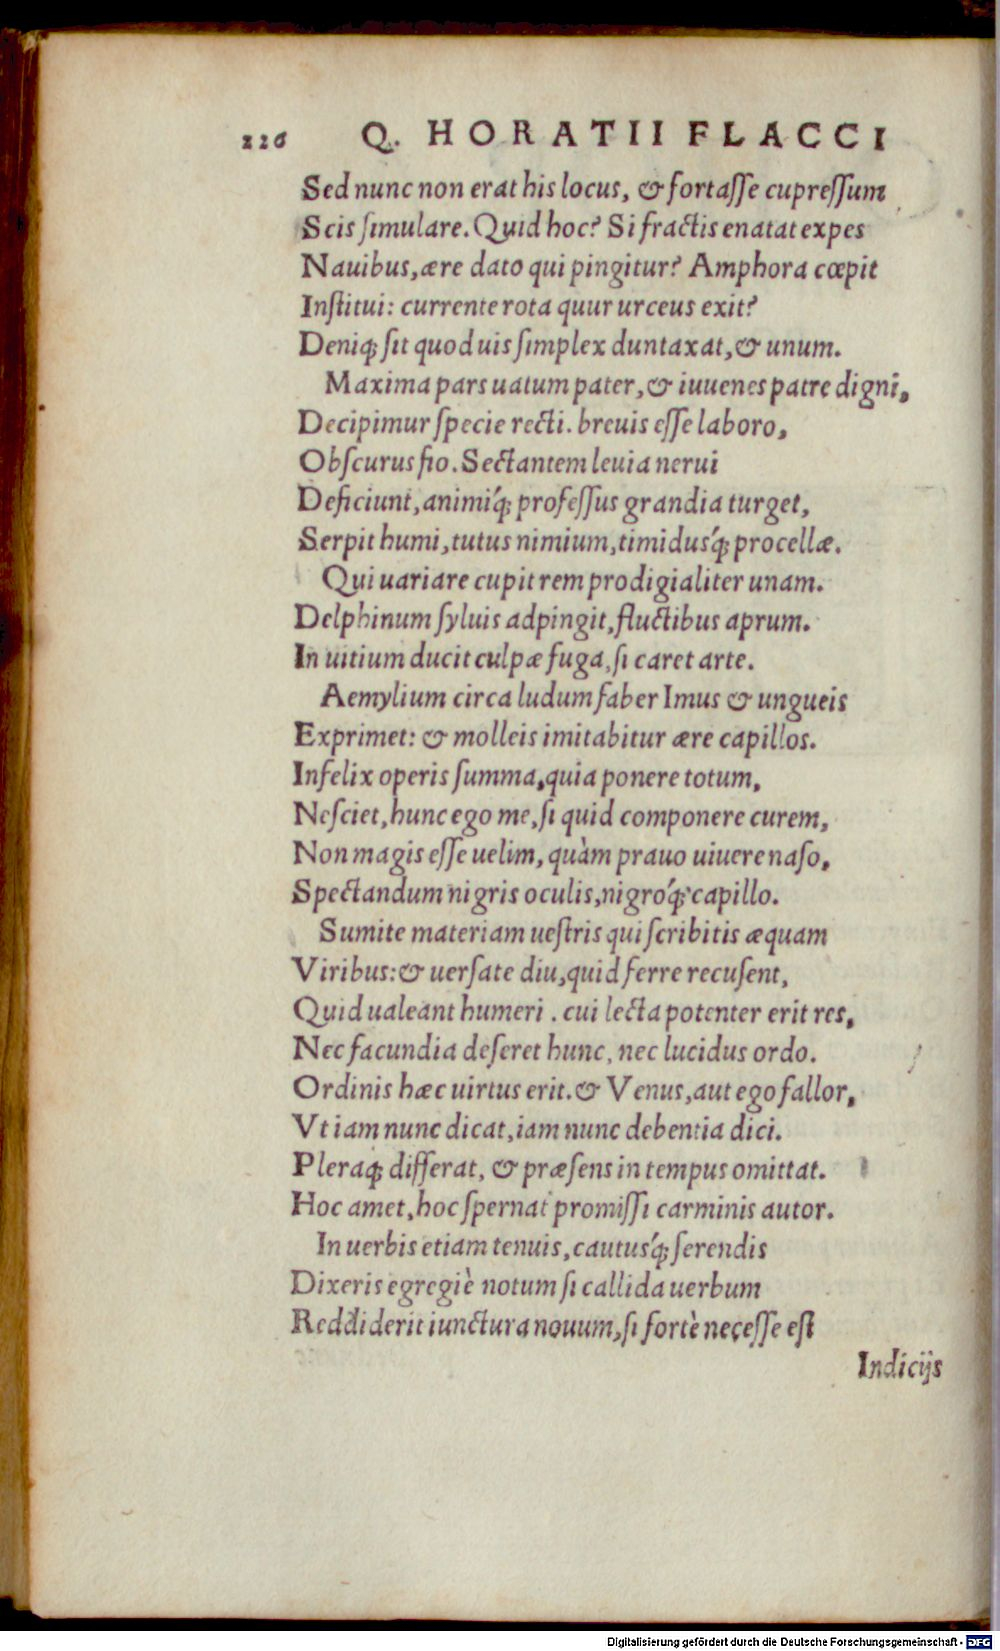 226 Q. HORATII FLACCI
Sed nunc non erat his locus, & fortaſſe cupreſſum
Scis ſimulare. Quid hoc? Si fractis enatat expes
Nauibus, ære dato qui pingitur? Amphora cœpit
Inſtitui: currente rota quur urceus exit?
Deniq; ſit quod uis ſimplex duntaxat, & unum.
Maxima pars uatum pater, & iuuenes patre digni,
Decipimur ſpecie recti. breuis eſſe laboro,
Obſcurus fio. Sectantem leuia nerui
Deficiunt, animiq́; profeſſus grandia turget,
Serpit humi, tutus nimium, timidusq́; procellæ.
Qui uariare cupit rem prodigialiter unam.
Delphinum ſyluis adpingit, fluctibus aprum.
In uitium ducit culpæ fuga, ſi caret arte.
Aemylium circa ludum faber Imus & ungueis
Exprimet: & molleis imitabitur ære capillos.
Infelix operis ſumma, quia ponere totum,
Neſciet, hunc ego me, ſi quid componere curem,
Non magis eſſe uelim, quàm prauo uiuere naſo,
Spectandum nigris oculis, nigroq́; capillo.
Sumite materiam ueſtris qui ſcribitis æquam
Viribus: & uerſate diu, quid ferre recuſent,
Quid ualeant humeri. cui lecta potenter erit res,
Nec facundia deſeret hunc, nec lucidus ordo.
Ordinis hæc uirtus erit. & Venus, aut ego fallor,
Vt iam nunc dicat, iam nunc debentia dici.
Pleraq; differat, & præſens in tempus omittat.
Hoc amet, hoc ſpernat promiſſi carminis autor.
In uerbis etiam tenuis, cautusq́; ſerendis
Dixeris egregiè notum ſi callida uerbum
Reddiderit iunctura nouum, ſi fortè neceſſe eſt
Indicijs
Digitalisierung gefördert durch die Deutsche Forschungsgemeinschaft - DFG